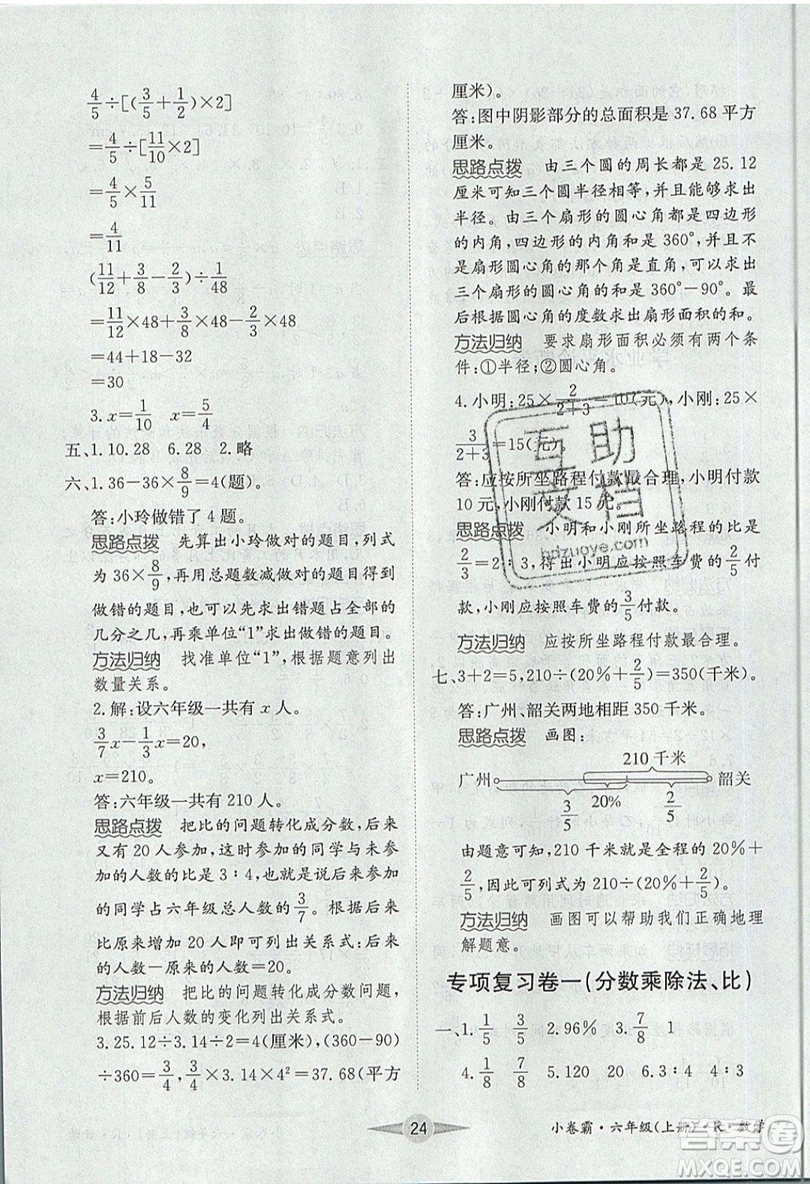 4/5÷[(3/5+1/2)×2]
=4/5÷[11/10×2]
=4/5×5/11
=4/11
(11/12+3/8-2/3)÷1/48
=11/12×48+3/8×48-2/3×48
=44+18-32
=30
3. x=1/10 x=5/4
五、1.10.28 6.28 2.略
六、1.36-36×8/9=4(题)。
答:小玲做错了4题。
思路点拨 先算出小玲做对的题目,列式
为36×8/9,再用总题数减做对的题目得到
做错的题目,也可以先求出错题占全部的
几分之几,再乘单位“1”求出做错的题目。
方法归纳 找准单位“1”,根据题意列出
数量关系。
2.解:设六年级一共有x人。
3/7x-1/3x=20,
x=210。
答:六年级一共有210人。
思路点拨 把比的问题转化成分数,后来
又有20人参加,这时参加的同学与未参
加的人数的比是3∶4,可以得出后来参加
的同学占六年级总人数的3/7,根据后来
比原来增加20人即可列出关系式:后来
的人数-原来的人数=20。
方法归纳 把比的问题转化成分数问题,
根据前后人数的变化列出关系式。
3.25.12÷3.14÷2=4(厘米),(360-90)
÷360=3/4,3/4×3.14×4²=37.68(平方
厘米)。
答:图中阴影部分的总面积是37.68平方
厘米。
思路点拨 由三个圆的周长都是25.12
厘米可知三个圆半径相等,并且可以求出
半径。由三个扇形的圆心角都是四边形
的内角,四边形的内角和是360°,并且不
是扇形圆心角的那个角是直角,可以求出
三个扇形的圆心角的和是360°-90°。最
后根据圆心角的度数求出扇形面积的和。
方法归纳 要求扇形面积必须有两个条
件:①半径;②圆心角。
4.小明:25×2/2+3=10(元),小刚:25×
3/2+3=15(元)。
答:应按所坐路程付款最合理,小明付款
10元,小刚付款15元。
思路点拨 小明和小刚所坐路程的比是
2/2=2∶3,得出小明应按照车费的2/5付
款,小刚应按照车费的3/5付款。
方法归纳 应按所坐路程付款最合理。
七、3+2=5,210÷(20%+2/5)=350(千米)。
答:广州、韶关两地相距350千米。
思路点拨 画图:
210千米
广州 韶关
3/5 20% 2/5
由题意可知,210千米就是全程的20%+
2/5,因此可列式为:210÷(20%+2/5)。
方法归纳 画图可以帮助我们正确地理
解题意。
专项复习卷一(分数乘除法、比)
一、1.1/5 3/5 2.96% 3.7/8 1
4.1/8 7/8 5.120 20 6.3∶4 4∶3
24
小卷霸·六年级(上册)·R·数学
互助
文档
hdzuoye.com
答案圈
MXQE.COM